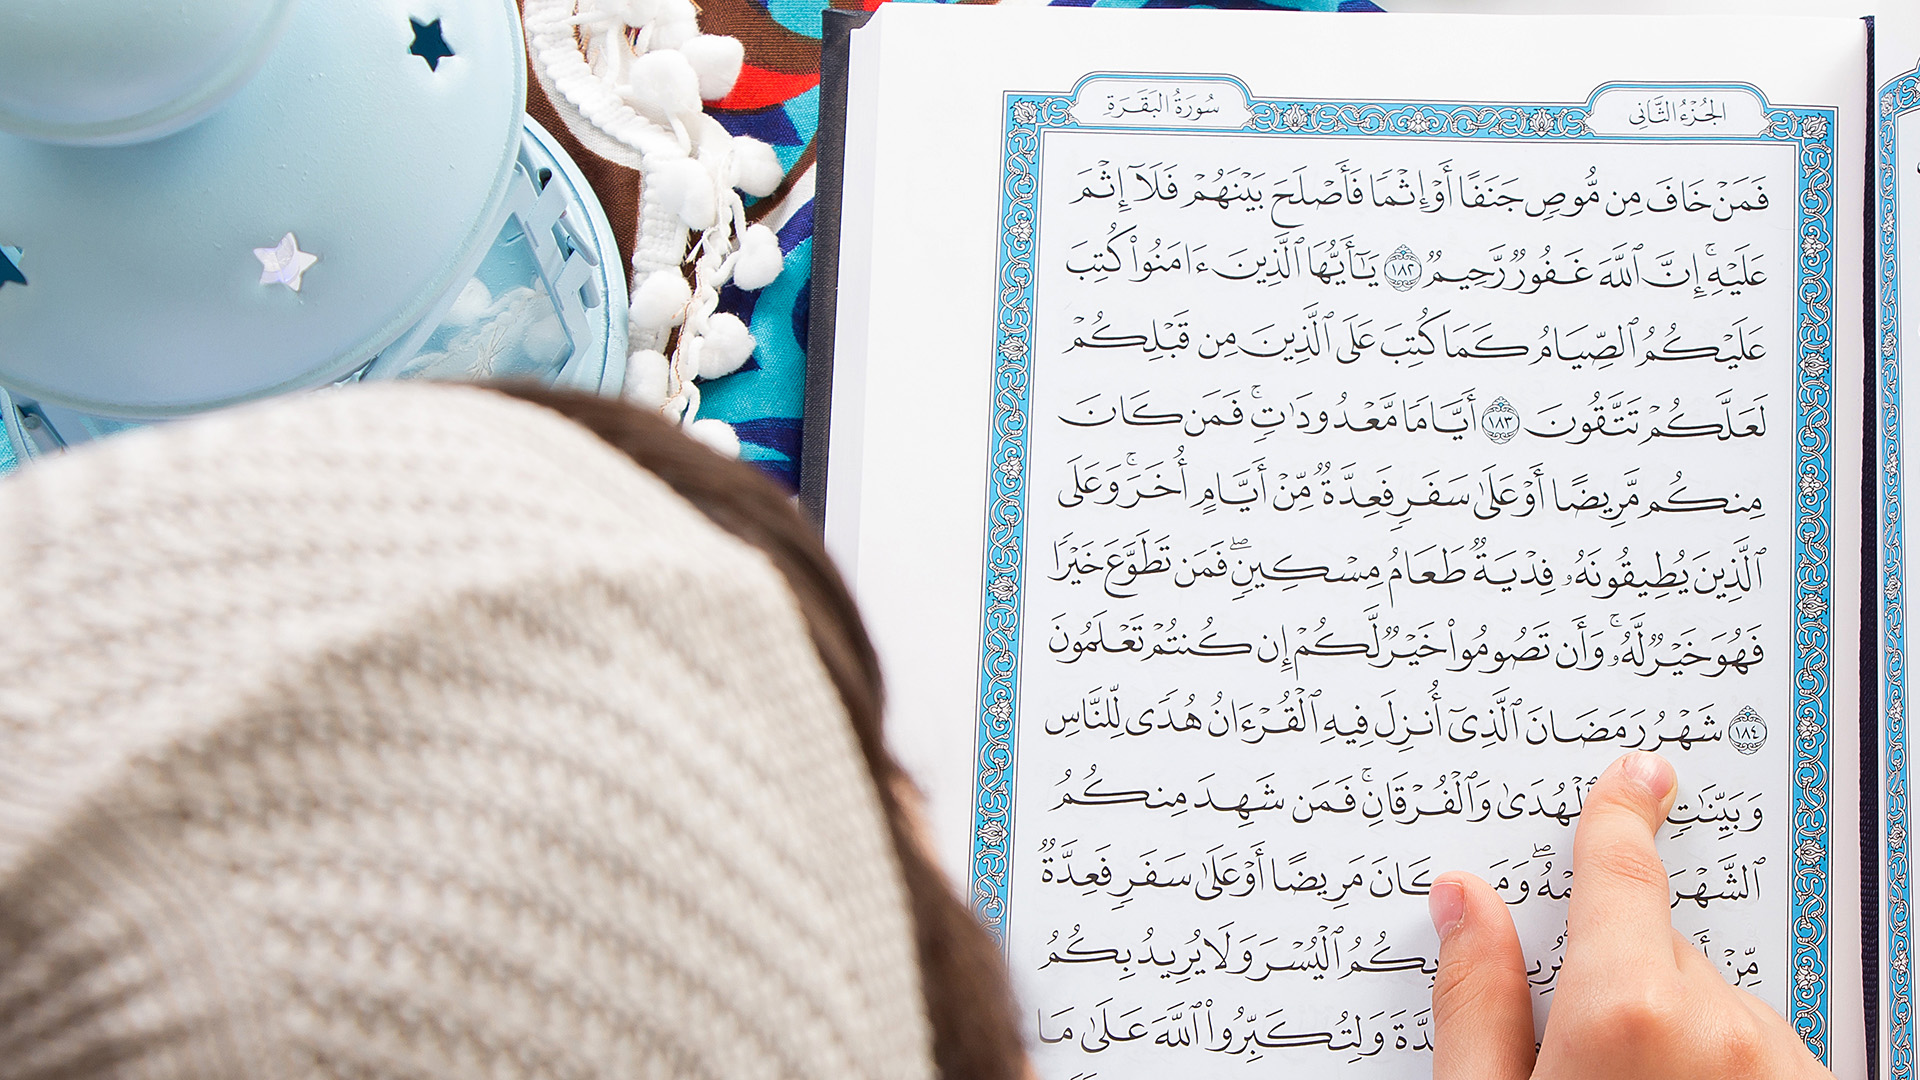 الجُزْءُ الثَّانِي
سُورَةُ البَقَرَةِ
فَمَنْ خَافَ مِن مُّوصٍ جَنَفًا أَوْ إِثْمًا فَأَصْلَحَ بَيْنَهُمْ فَلَآ إِثْمَ
عَلَيْهِۚ إِنَّ ٱللَّهَ غَفُورٌ رَّحِيمٌ ١٨٢ يَٰٓأَيُّهَا ٱلَّذِينَ ءَامَنُوا۟ كُتِبَ
عَلَيْكُمُ ٱلصِّيَامُ كَمَا كُتِبَ عَلَى ٱلَّذِينَ مِن قَبْلِكُمْ
لَعَلَّكُمْ تَتَّقُونَ ١٨٣ أَيَّامًا مَّعْدُودَٰتٍۚ فَمَن كَانَ
مِنكُم مَّرِيضًا أَوْ عَلَىٰ سَفَرٍ فَعِدَّةٌ مِّنْ أَيَّامٍ أُخَرَۚ وَعَلَى
ٱلَّذِينَ يُطِيقُونَهُۥ فِدْيَةٌ طَعَامُ مِسْكِينٍۖ فَمَن تَطَوَّعَ خَيْرًا
فَهُوَ خَيْرٌ لَّهُۥۚ وَأَن تَصُومُوا۟ خَيْرٌ لَّكُمْ إِن كُنتُمْ تَعْلَمُونَ
١٨٤ شَهْرُ رَمَضَانَ ٱلَّذِىٓ أُنزِلَ فِيهِ ٱلْقُرْءَانُ هُدًى لِّلنَّاسِ
وَبَيِّنَٰتٍ ٱلْهُدَىٰ وَٱلْفُرْقَانِۚ فَمَن شَهِدَ مِنكُمُ
ٱلشَّهْرَ كَانَ مَرِيضًا أَوْ عَلَىٰ سَفَرٍ فَعِدَّةٌ
مِّنْ بِكُمُ ٱلْيُسْرَ وَلَا يُرِيدُ بِكُمُ
وَلِتُكَبِّرُوا۟ ٱللَّهَ عَلَىٰ مَا